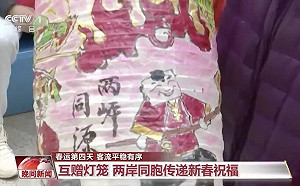 CCTV
两岸同源
春运第四天 客流平稳有序
晚间新闻
互赠灯笼 两岸同胞传递新春祝福